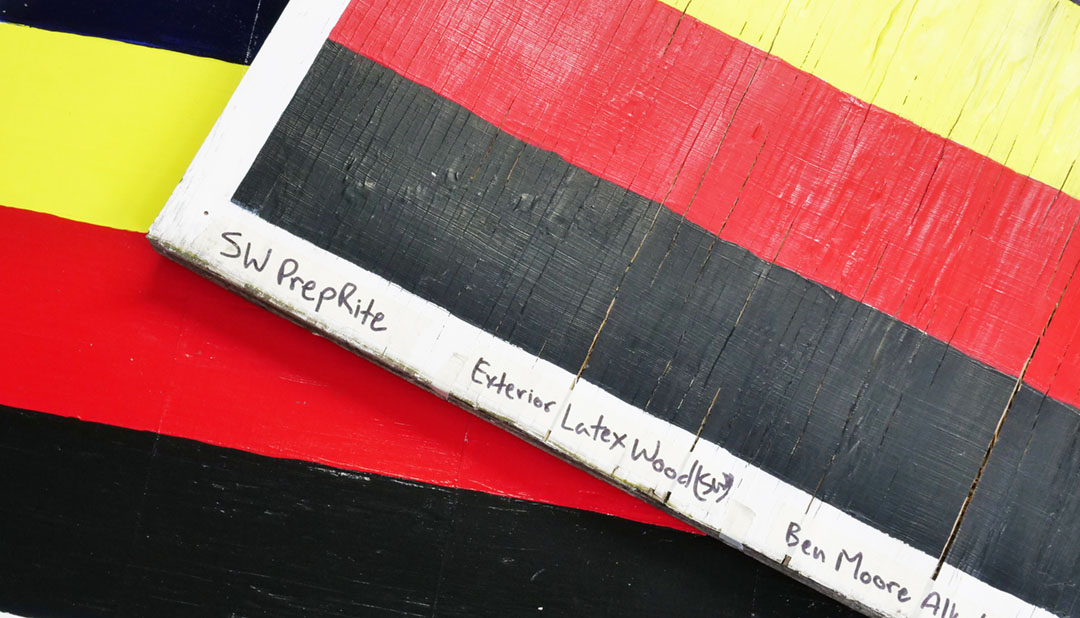 SW PrepRite
Exterior Latex Wood (SW)
Ben Moore